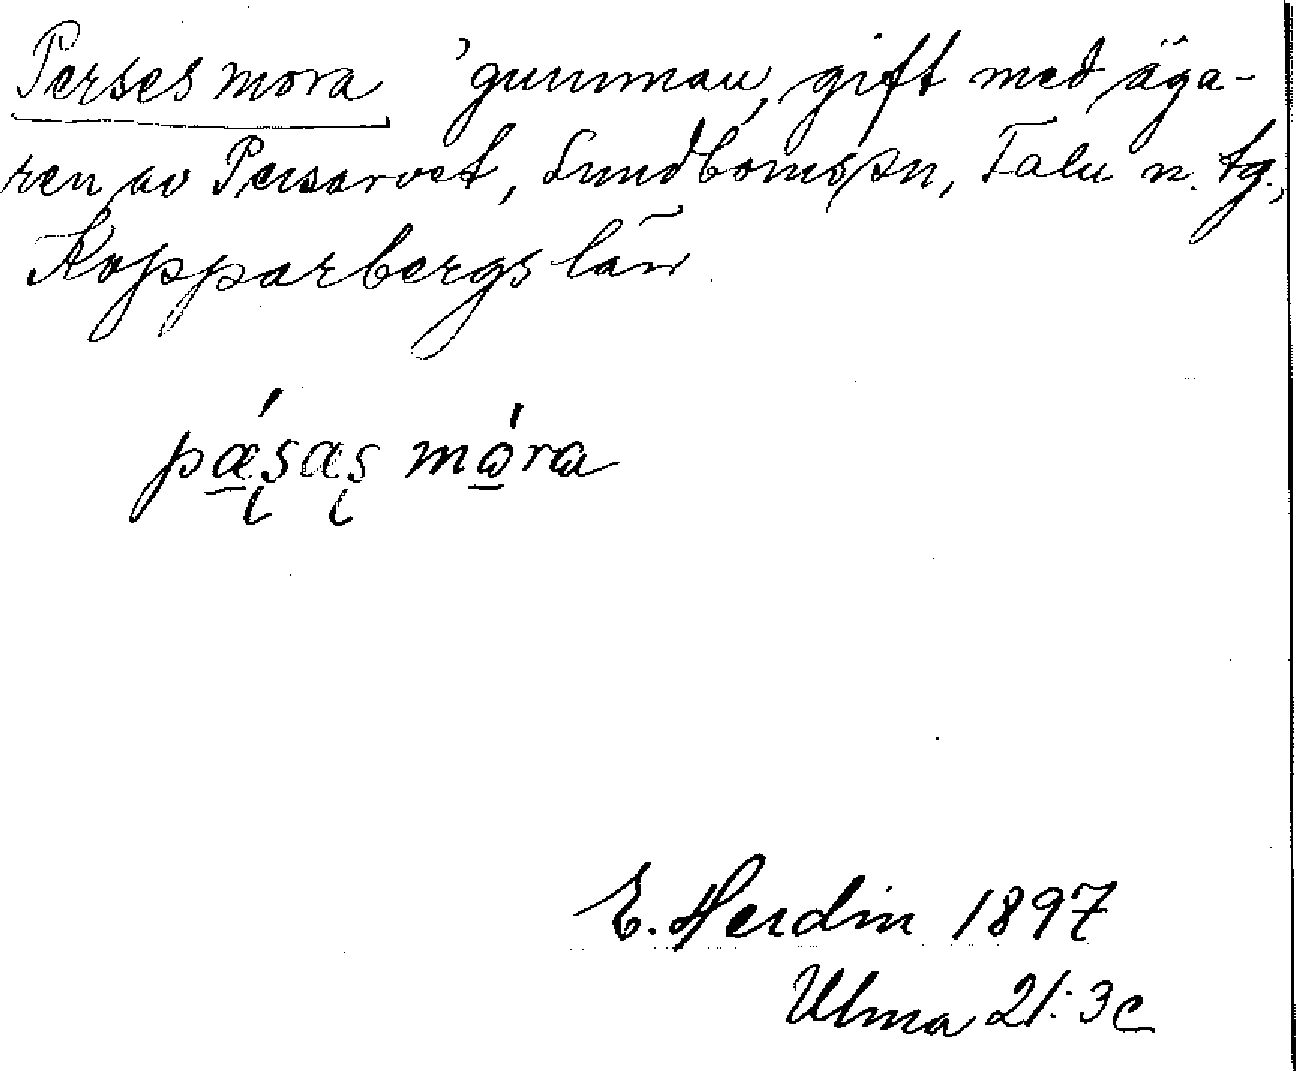 Perses mora 'gumman, gift med äga-
ren av Persarvet, Sundbornssn, Falu n. tg.,
Kopparbergs län
pǽ̲ṣaṣ mώ̲ra
E. Herdin 1897
Ulma 21:3c